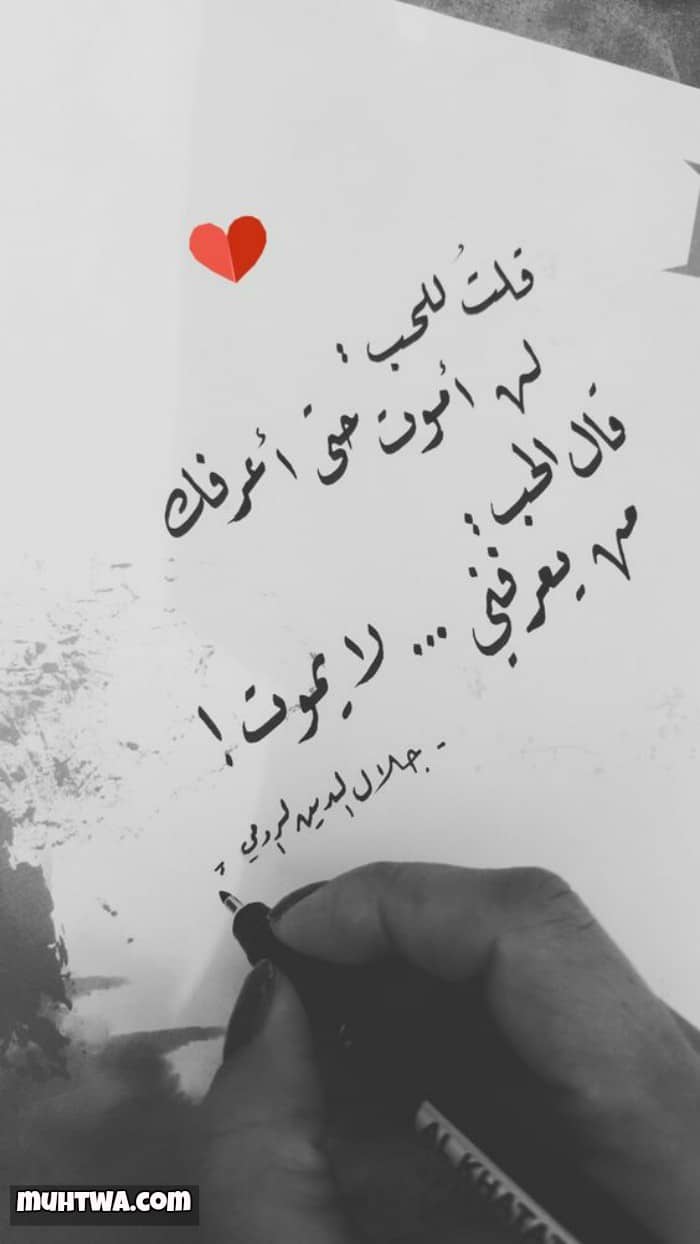 قلتُ للحب :
لن أموت حتى أعرفك
قال الحب :
من يعرفني ... لا يموت !
- جلال الدين الرومي
AL KHATAT
muhtwa.com